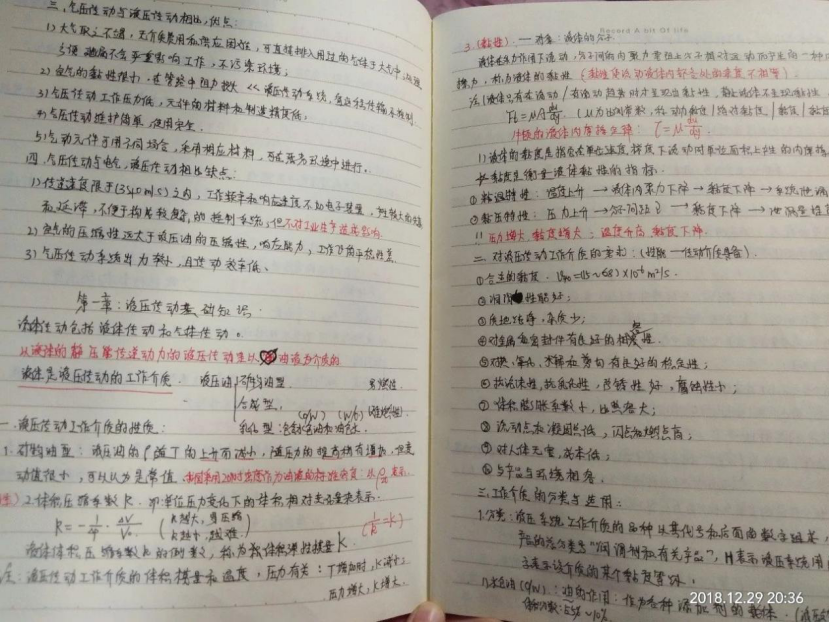 三、气压传动与液压传动相比，优点：
1) 大气取之不尽，无介质费用和供应困难，可直接排入用过的气体于大气中，处理
方便，泄漏不会严重影响工作，不污染环境；
2) 空气的黏性很小，在管路中阻力损失 << 液压传动系统，
3) 气压传动工作压力低，元件的材料和制造精度低；
4) 气压传动维护简单，使用安全．
5) 气动元件可用于同场合，采用相应材料，可在恶劣环境中进行．
四、气压传动与电气、液压传动相比缺点：
1) 传递速度限于(340m/s)之内，工作频率和响应速度不如电子装置，
和延滞，不便于构成较复杂的控制系统，但不对工业生产造成影响．
2) 空气的压缩性远大于液压油的压缩性，响应能力，工作
3) 气压传动系统出力较小，且传动效率低。
第一章：液压传动基础知识
流体传动包括液体传动和气体传动。
从液体的静压能传递动力的液压传动是以油液为介质的
液体是液压传动的工作介质． 液压油 矿物油型． 易燃性．
合成型． (O/W) (W/O)
乳化型
一、液压传动工作介质的性质：
1. 对矿物油型：液压油的ρ随T的上升而减小，随压力的提高稍有增加，但变
动值很小，可以认为是常值．我国采用20℃时密度作为油液的标准密度：以ρ20表示．
2. 体积压缩系数K．即单位压力变化下的体积相对变化量来表示．
K = -1/Δp · ΔV/V₀． (k越大，易压缩 k越小，越难．) (1/K = k)
液体体积压缩系数k的倒数，称为液体体积弹性模量K
注：液压传动工作介质的体积模量和温度，压力有关：T增加时，K减小；
压力增大，K增大．
Record A bit Of life
3. (黏性)．— 对象：液体的分子
液体在外力作用下流动，分子间的内聚力要阻止分子相对运动而产生的一种内
摩擦力，称为液体的黏性 (黏性使流动液体内部各处的速度不相等)
注(液体只有在流动/有流动趋势时才呈现出黏性，静止液体不呈现黏性
Ff = μA du/dy． (μ为比例常数，称动力黏度/绝对黏度/黏度
牛顿的液体内摩擦定律：τ = μ du/dy．
1) 液体的黏度是指它在单位速度梯度下流动时单位面积上产生的内摩擦
* 黏度是衡量液体黏性的指标．
① 黏温特性：温度上升 → 液体内聚力下降 → 黏度下降 →
② 黏压特性：压力上升 → 分子间距 → 黏度下降 →
!! 压力增大，黏度增大；温度升高，黏度下降．
二、对液压传动工作介质的要求：(性能—传动介质具备)．
① 合适的黏度．V40 = (15~68)×10⁻⁶ m²/s．
② 润滑性能好；
③ 质地洁净，杂质少；
④ 对金属和密封件有良好的相容性．
⑤ 对热、氧化、水解和剪切有良好的稳定性；
⑥ 抗泡沫性，抗乳化性，防锈性好，腐蚀性小；
⑦ 体积膨胀系数小，比热容大；
⑧ 流动点和凝固点低，闪点和燃点高；
⑨ 对人体无害，成本低；
⑩ 与产品与环境相容．
三、工作介质的分类与选用：
1. 分类：液压系统工作介质的品种以其代号和后面的数字组成，
产品的总分类号"润滑剂和有关产品"，H表示液压系统用
字表示该介质的某个黏度等级．
1) 水包油(O/W)．
5%~10%．
2018.12.29 20:36